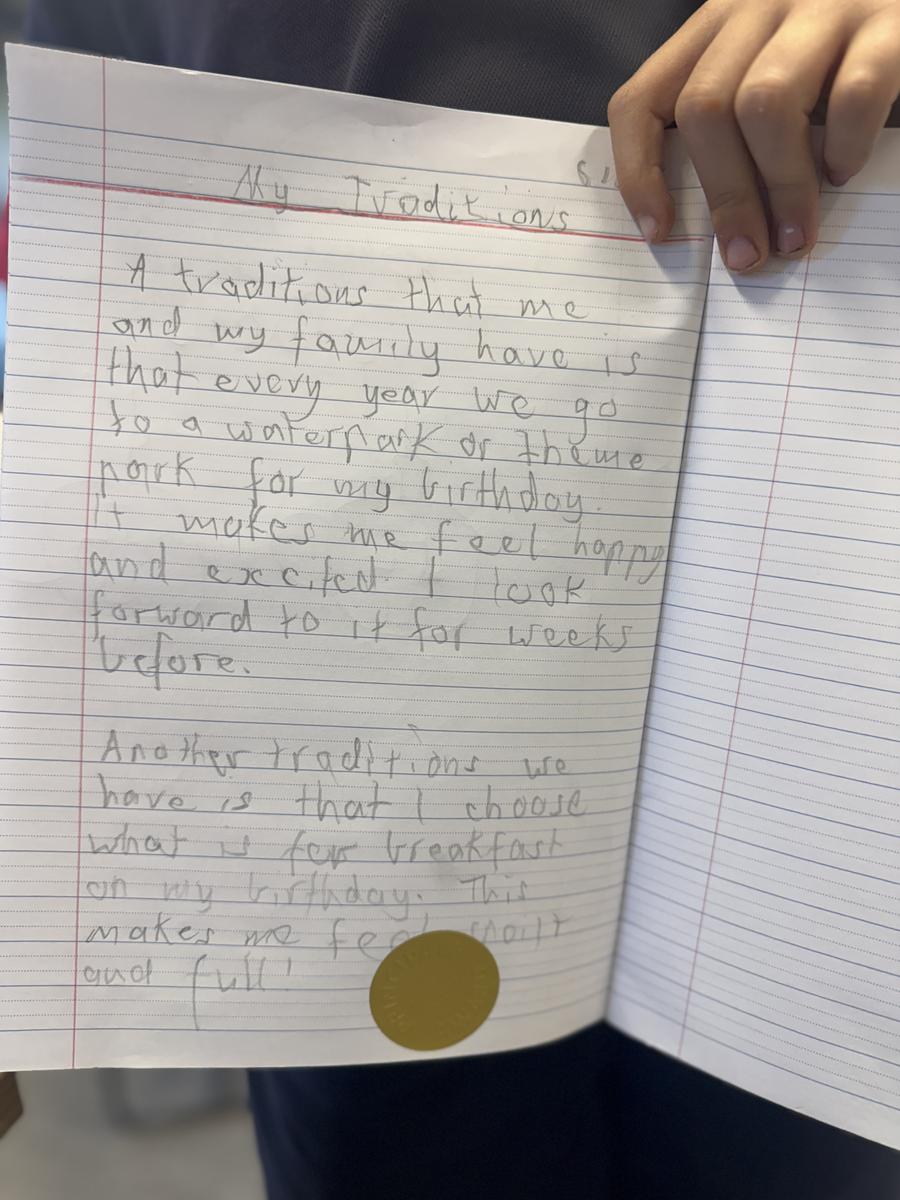 My Traditions
A traditions that me
and my family have is
that every year we go
to a waterpark or theme
park for my birthday.
It makes me feel happy
and excited. I look
forward to it for weeks
before.
Another traditions we
have is that I choose
what is for breakfast
on my birthday. This
makes me feel spoilt
and full!
PRINCIPAL